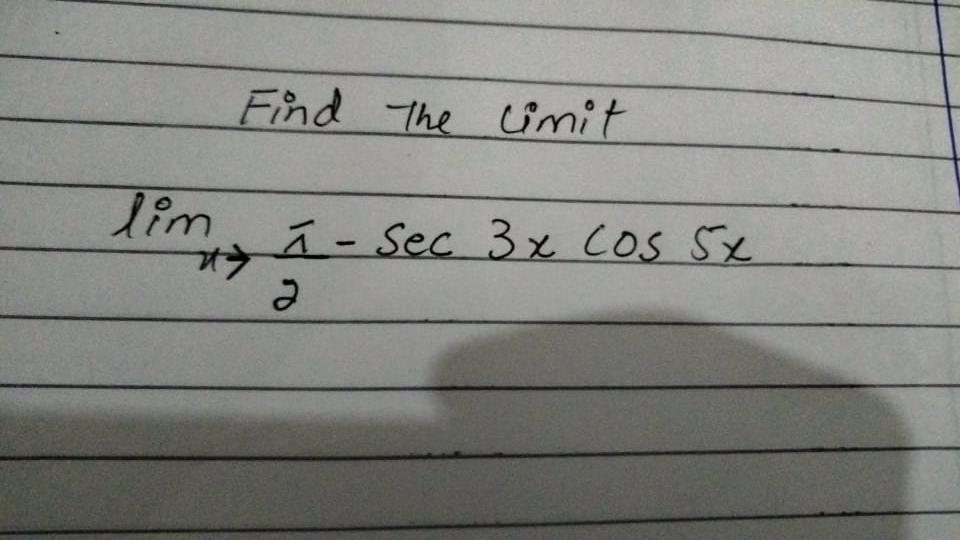 Find The Limit
lim x→ π/2 - Sec 3x Cos 5x